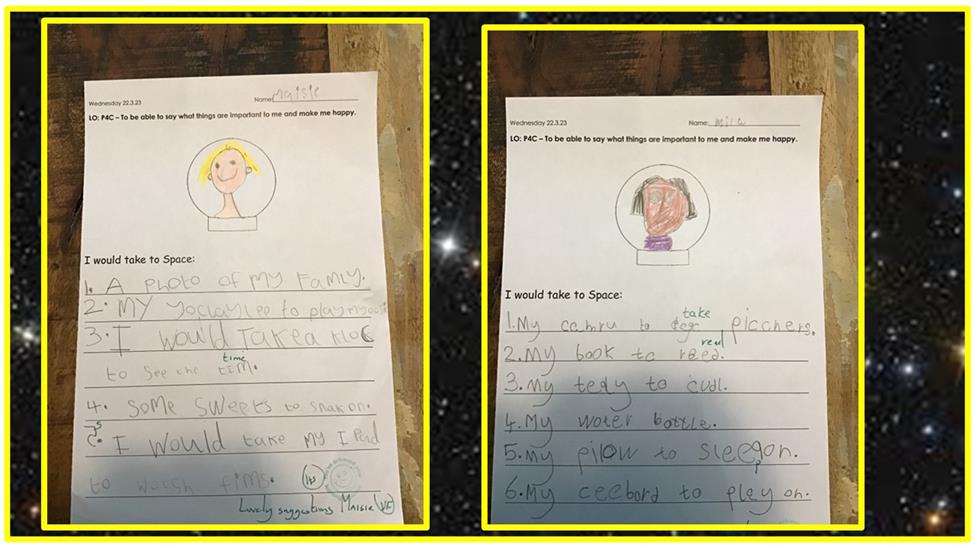 Wednesday 22.3.23
Name: Maisie
LO: P4C – To be able to say what things are important to me and make me happy.
I would take to Space:
1. A Photo of My Family.
2. MY to play my
3. I would Take a kloc
time
to see the tim.
4. Some Sweets to snak on.
5. I would take My I Pad
to watsh fims.
Lovely suggestions Maisie (VF)
Wednesday 22.3.23
Name:
LO: P4C – To be able to say what things are important to me and make me happy.
I would take to Space:
take
1. My camru to picchers.
read
2. My book to raed.
3. My tedy to cudl.
4. My woter bottle.
5. My pilow to sleep on.
6. My ceebord to play on.